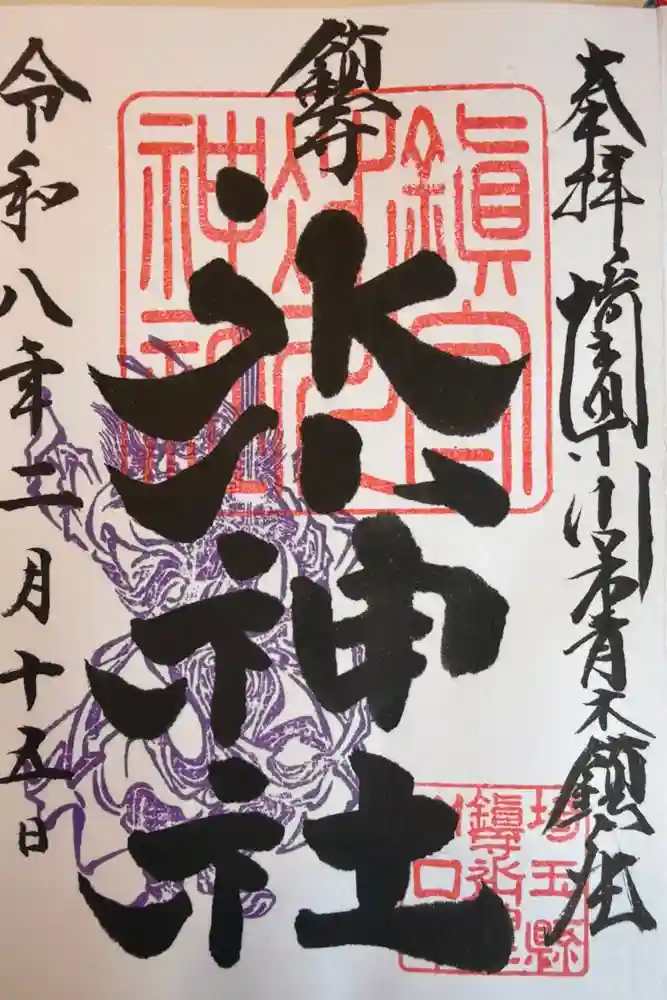 奉拝 埼玉県川口市青木鎮座
鎮守
氷川神社
令和八年二月十五日
鎭守
氷川
神社
埼玉縣